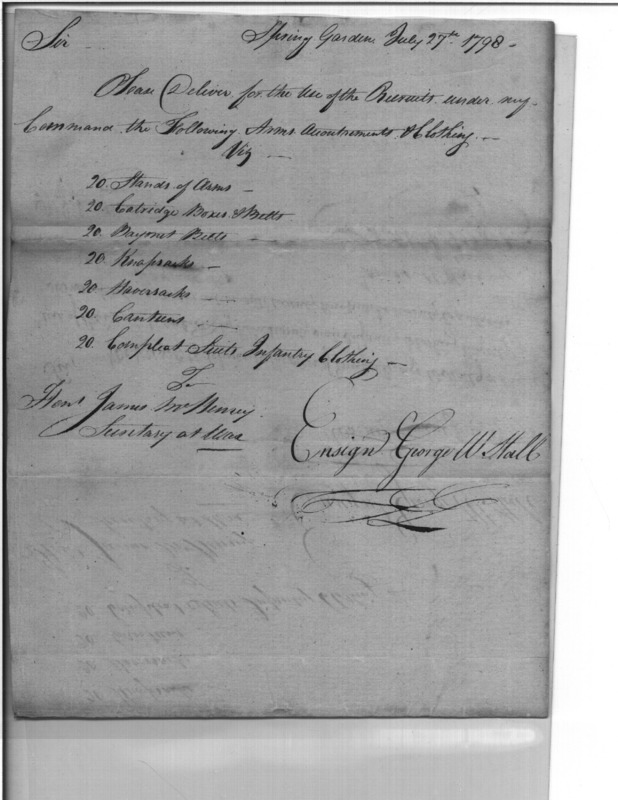 Sir
Spring Garden July 27th 1798 -
Please Deliver for the Use of the Recruits under my
Command the Following Arms Acoutrements & Clothing —
Viz —
20. Stands of Arms —
20. Catridge Boxes & Belts
20. Bayonet Belts —
20. Knapsacks —
20. Haversacks —
20. Canteens —
20. Compleat Suits Infantry Clothing —
To
Honl James McHenry
Secretary at War
Ensign George W Hall